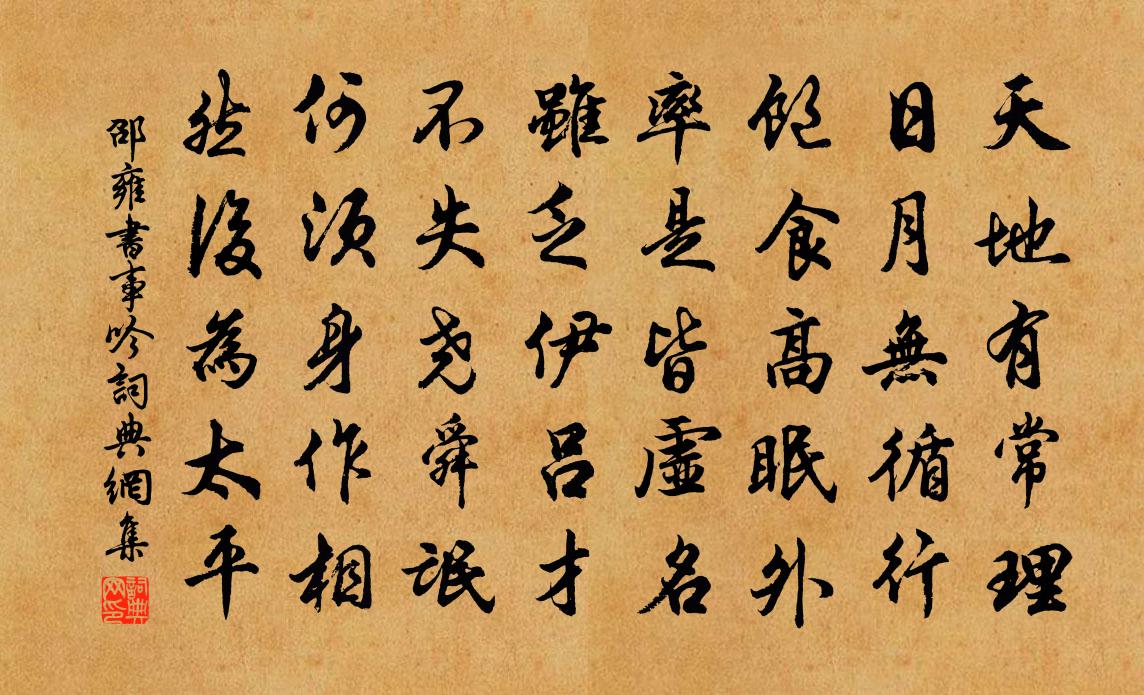 天地有常理
日月無循行
飽食高眠外
率是皆虛名
雖乏伊呂才
不失堯舜氓
何須身作相
然後為太平
邵雍書事吟詞典網集
詞典网印